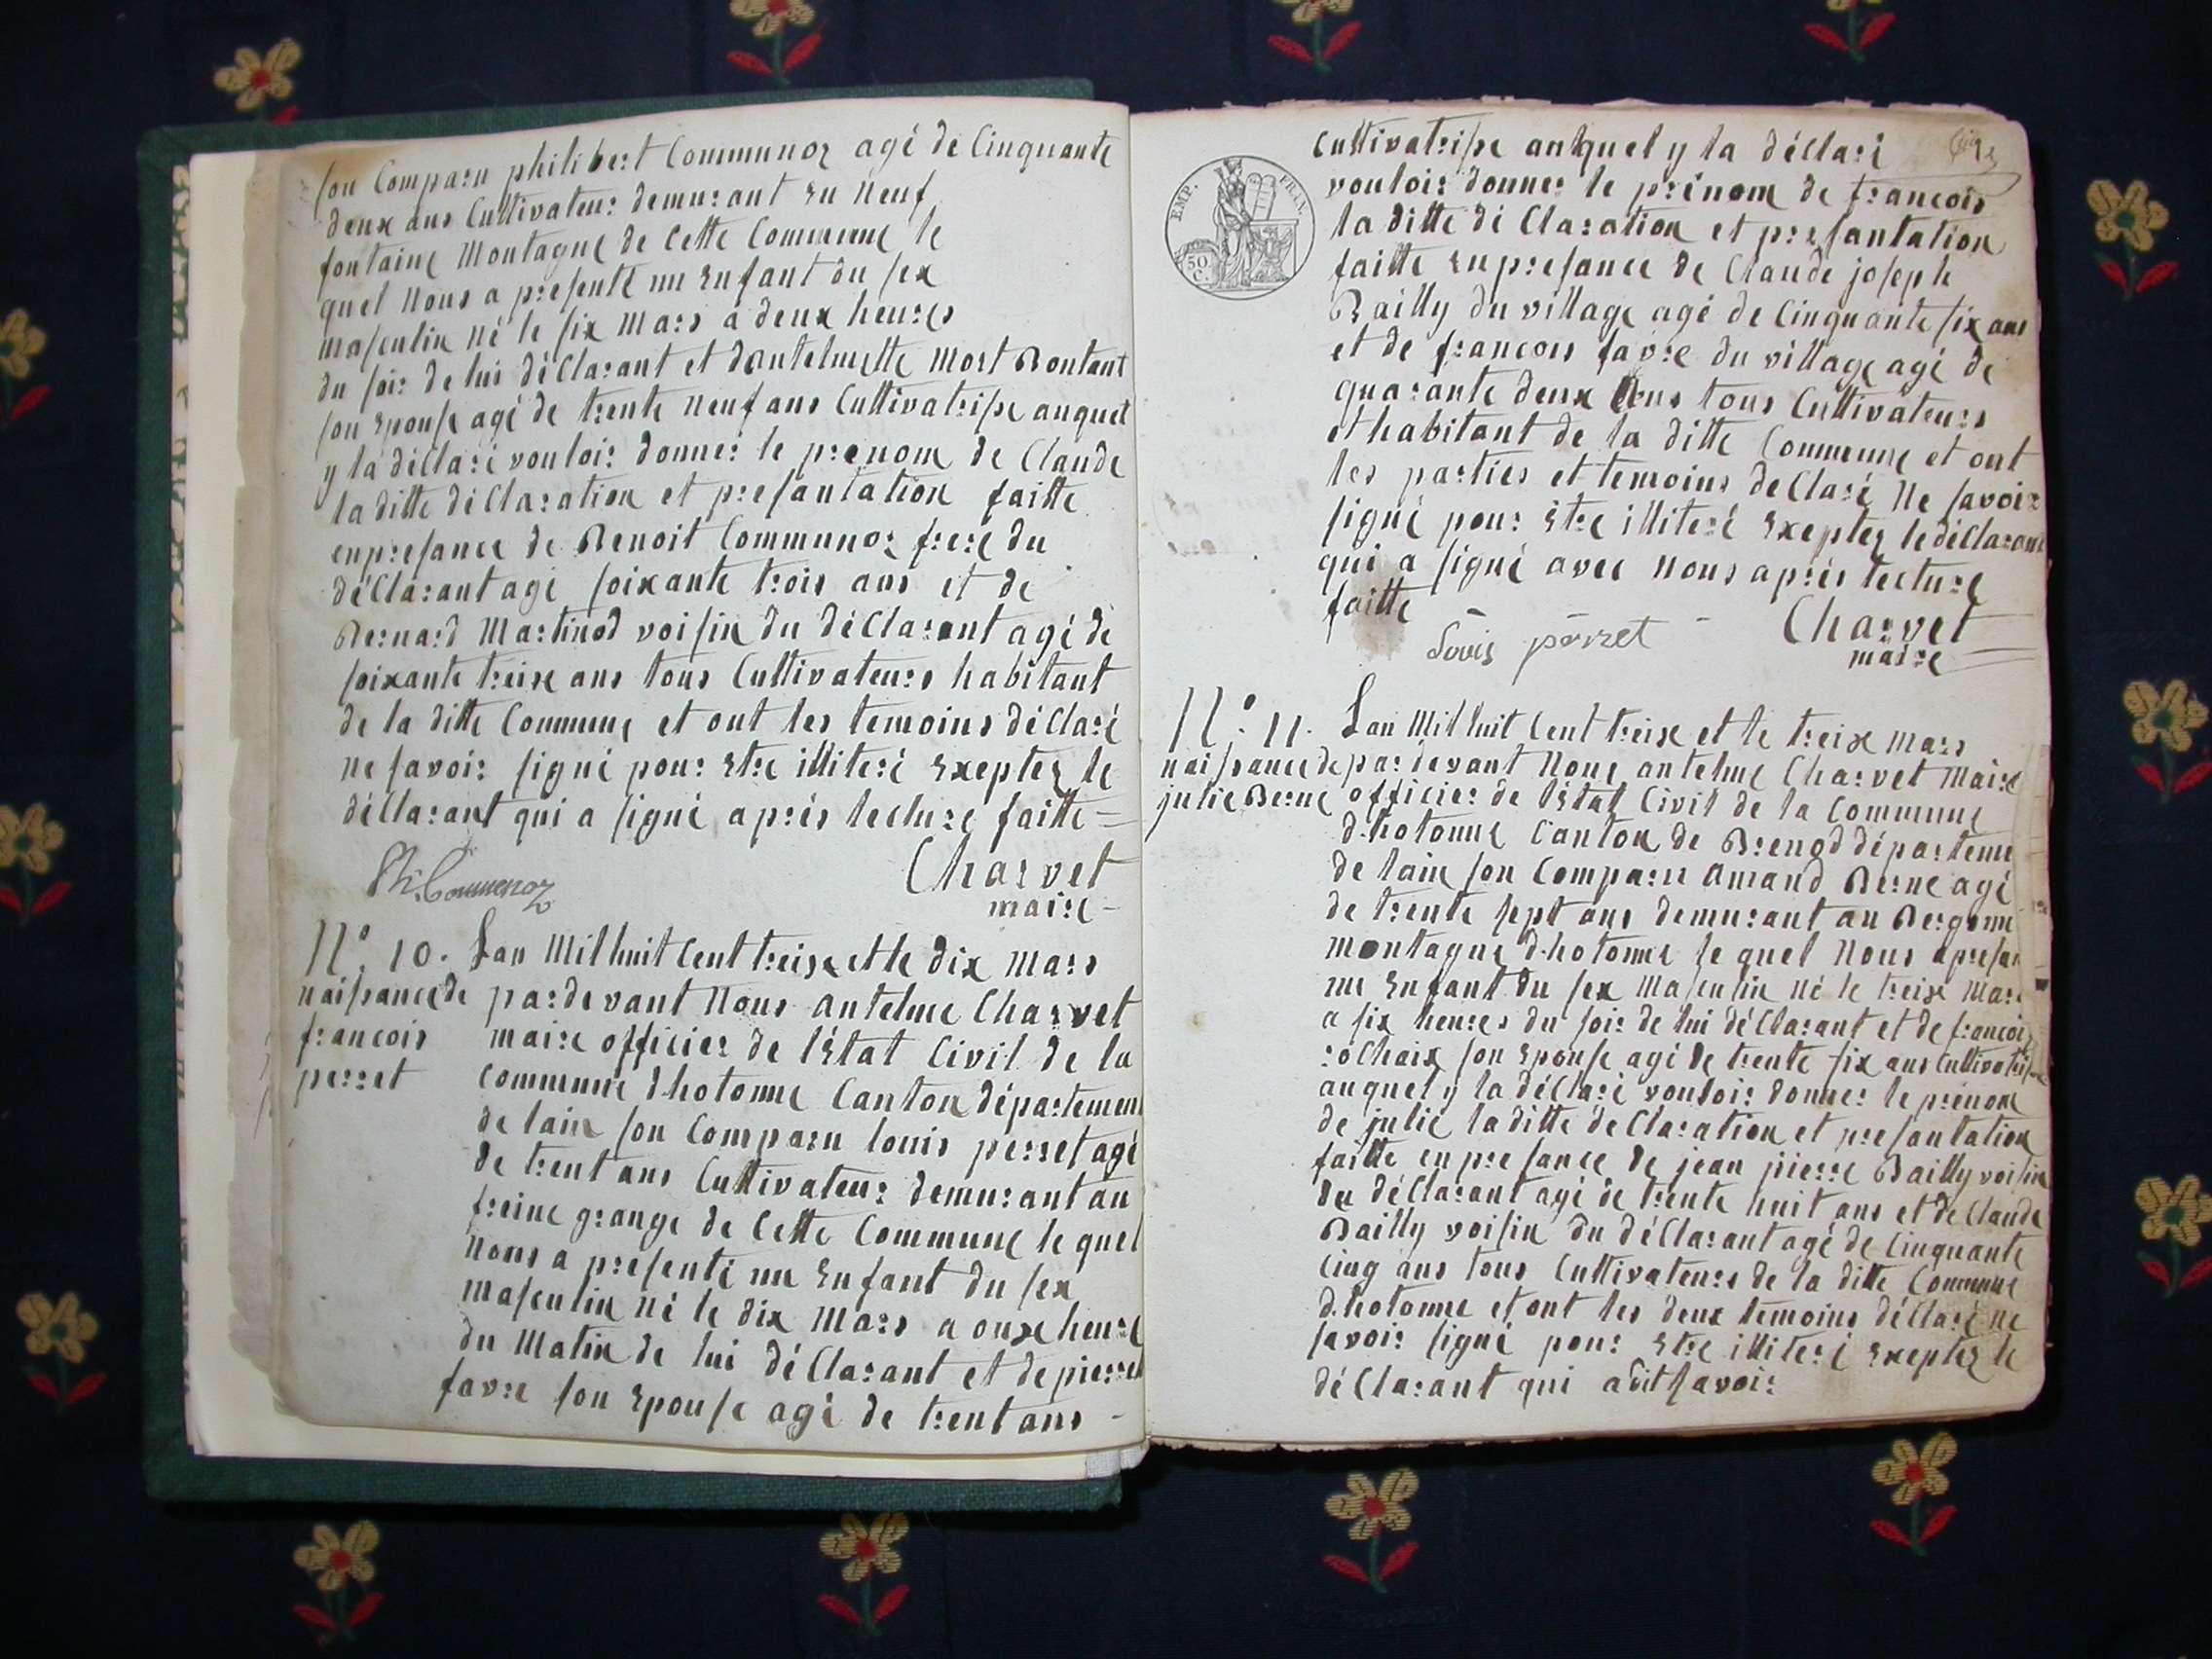 son Comparu philibert Communoz agé de Cinquante
deux ans Cultivateur demurant en Neuf
fontaine Montagne de Cette Commune le
quel Nous a presenté un Enfant du sex
masculin né le six Mars a deux heures
du soir de lui déClarant et dantelmette Mort Bontant
son Epouse agé de trente Neuf ans Cultivatrisse auquel
y la déClaré vouloir donner le prenom de Claude
la ditte déClaration et presantation faitte
enpresance de Benoit Communoz frere du
déClarant agé soixante trois ans et de
Bernard Martinod voisin du déClarant agé de
soixante treise ans tous Cultivateurs habitant
de la ditte Commune et ont les temoins déClaré
ne savoir signé pour Etre illiteré Exeptez le
déClarant qui a signé aprés lecture faitte =
Ph. Communoz
Charvet
maire -
N.° 10. Lan Mil huit Cent treise et le dix Mars
naissance de pardevant Nous antelme Charvet
francois maire officier de lEtat Civil de la
perret Commune d.hotonne Canton département
de lain son Comparu louis perret agé
de trent ans Cultivateur demurant au
freine grange de Cette Commune le quel
Nous a presenté un Enfant du sex
masculin né le dix Mars a onze heure
du Matin de lui déClarant et de pierrett
favre son Epouse agé de trent ans -
EMP. FRAN.
50 C.
Cultivatrisse auquel y la déClaré
vouloir donner le prénom de francois
la ditte déClaration et presantation
faitte enpresance de Claude joseph
Bailly du village agé de Cinquante six ans
et de francois favre du village agé de
quarante deux ans tous Cultivateurs
et habitant de la ditte Commune et ont
les parties et temoins deClaré Ne savoir
signé pour Etre illiteré Exeptez le déClarant
qui a signé avec Nous aprés lecture
faitte
Lovis perret - Charvet
maire
N.° 11. Lan Mil huit Cent treise et le treise mars
naissance de par devant Nous antelme Charvet Maire
julie Berne officier de lEtat Civil de la Commune
d.hotonne Canton de Brenod départeme
de lain son Comparu amand Berne agé
de trente sept ans demurant au Bergonne
montagne d.hotonne le quel Nous apresan
un Enfant du sex Masculin né le treise Mars
a six heures du soir de lui déClarant et de francois
roChaix son Epouse agé de trente six ans Cultivatrisse
auquel y la déClaré vouloir donner le prénom
de julie la ditte deClaration et presantation
faitte en presance de jean pierre Bailly voisin
du déClarant agé de trente huit ans et de Claude
Bailly voisin du déClarant agé de Cinquante
Cinq ans tous Cultivateurs de la ditte Commune
d.hotonne et ont les deux temoins déClaré ne
savoir signé pour Etre illiteré Exeptez le
déClarant qui a dit savoir